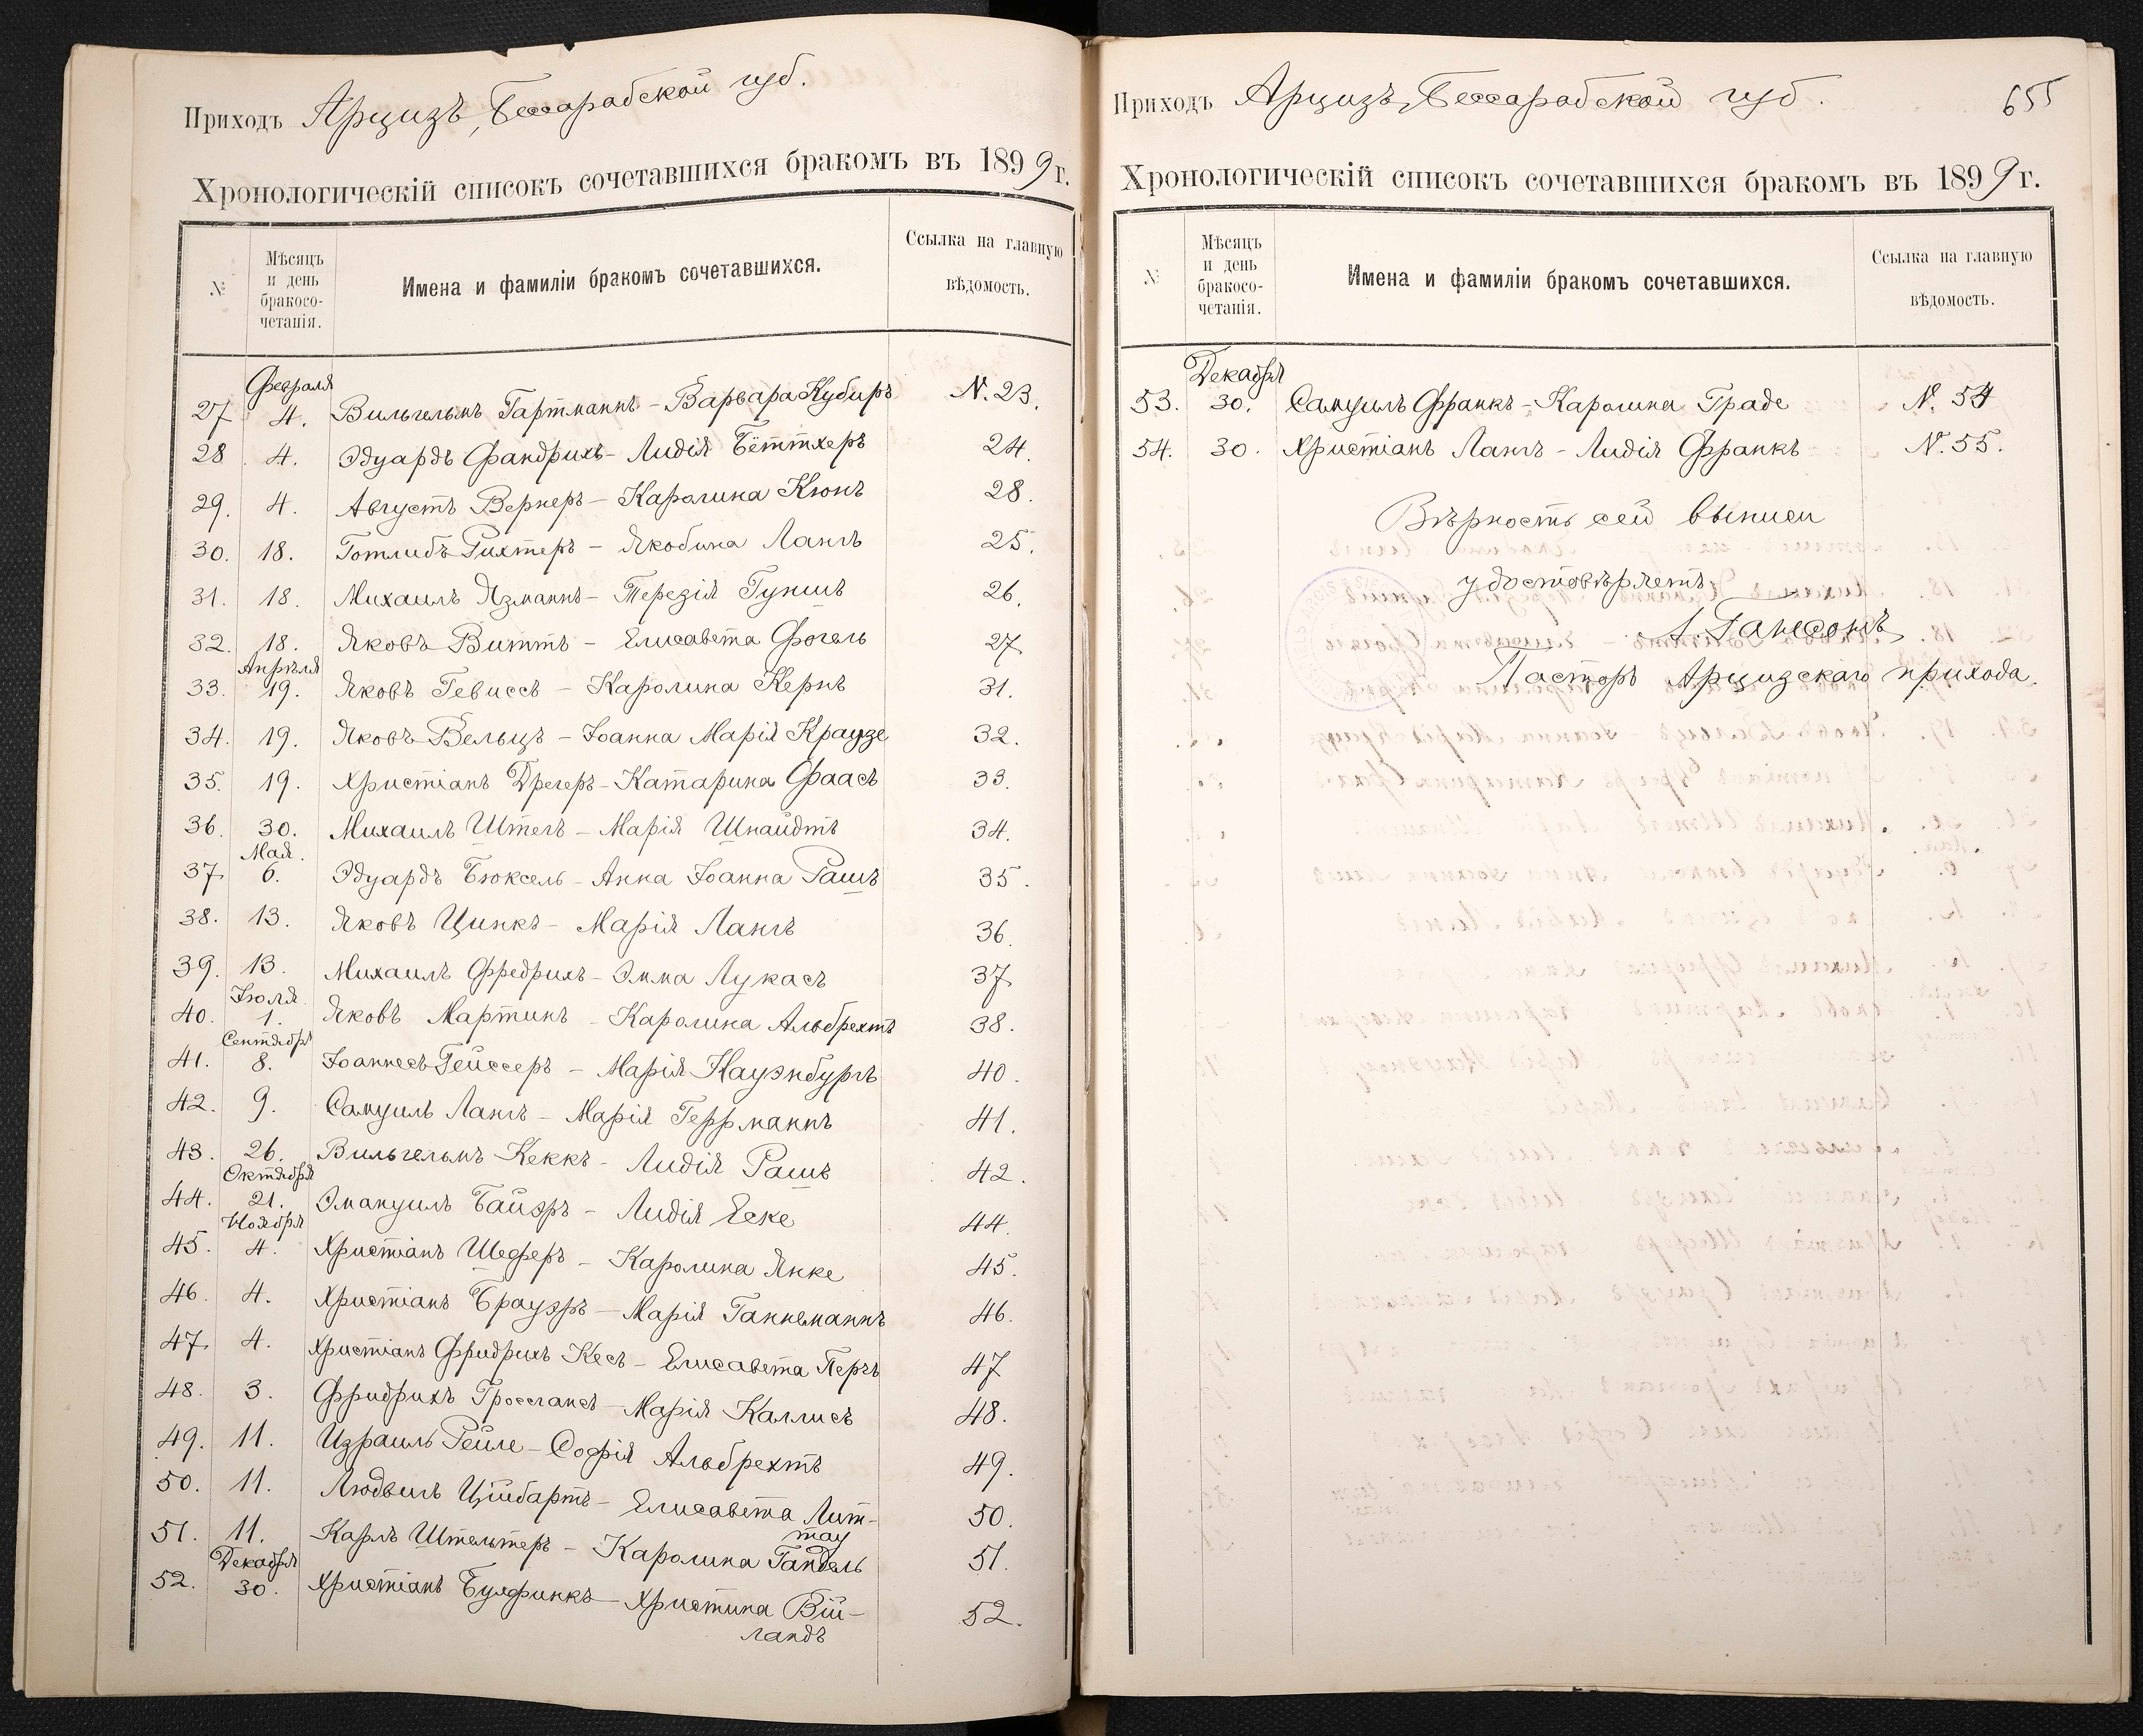 Приходъ Арцизъ, Бессарабской губ.
Хронологическій списокъ сочетавшихся бракомъ въ 1899 г.
№
Мѣсяцъ
и день
бракосо-
четанія.
Имена и фамиліи бракомъ сочетавшихся.
Ссылка на главную
вѣдомость.
Февраля
27 4. Вильгельмъ Гартманнъ - Варвара Кубиръ N. 23.
28. 4. Эдуардъ Фандрихъ - Лидія Бёттхеръ 24.
29. 4. Августъ Вернеръ - Каролина Кюнъ 28.
30. 18. Готлибъ Рихтеръ - Якобина Лангъ 25.
31. 18. Михаилъ Язманнъ - Терезія Гуншъ 26.
32. 18. Яковъ Виттъ - Елисавета Фогель 27
Апрѣля
33. 19. Яковъ Гевиссъ - Каролина Кернъ 31.
34. 19. Яковъ Вельцъ - Іоанна Марія Краузе 32.
35. 19. Христіанъ Дрегеръ - Катарина Фаасъ 33.
36. 30. Михаилъ Штегъ - Марія Шнайдтъ 34.
Мая.
37 6. Эдуардъ Бюксель - Анна Іоанна Рашъ 35.
38. 13. Яковъ Цинкъ - Марія Лангъ 36.
39. 13. Михаилъ Фредрихъ - Эмма Лукасъ 37
Іюля
40. 1. Яковъ Мартинъ - Каролина Альбрехтъ 38.
Сентября
41. 8. Іоаннесъ Гейссеръ - Марія Науэнбургъ 40.
42. 9. Самуилъ Лангъ - Марія Геррманнъ 41.
43. 26. Вильгельмъ Кеккъ - Лидія Рашъ 42.
Октября
44. 21. Эмануилъ Байэръ - Лидія Еске 44.
Ноября
45. 4. Христіанъ Шеферъ - Каролина Янке 45.
46. 4. Христіанъ Брауэръ - Марія Ганнеманнъ 46.
47 4. Христіанъ Фридрихъ Кесъ - Елисавета Перчъ 47
48. 3. Фридрихъ Гроссгансъ - Марія Каллисъ 48.
49. 11. Израиль Рейле - Софія Альбрехтъ 49.
50. 11. Людвигъ Ційбартъ - Елисавета Лит-
тау 50.
51. 11. Карлъ Штельтеръ - Каролина Гандель 51.
Декабря
52. 30. Христіанъ Булфинкъ - Христина Вій-
ландъ 52.
Приходъ Арцизъ, Бессарабской губ. 655
Хронологическій списокъ сочетавшихся бракомъ въ 1899 г.
№
Мѣсяцъ
и день
бракосо-
четанія.
Имена и фамиліи бракомъ сочетавшихся.
Ссылка на главную
вѣдомость.
Декабря
53. 30. Самуилъ Франкъ - Каролина Граде N. 54
54. 30. Христіанъ Лангъ - Лидія Франкъ N. 55.
Вѣрность сей выписи
удостовѣряетъ
А. Гансонъ
Пасторъ Арцизскаго прихода.